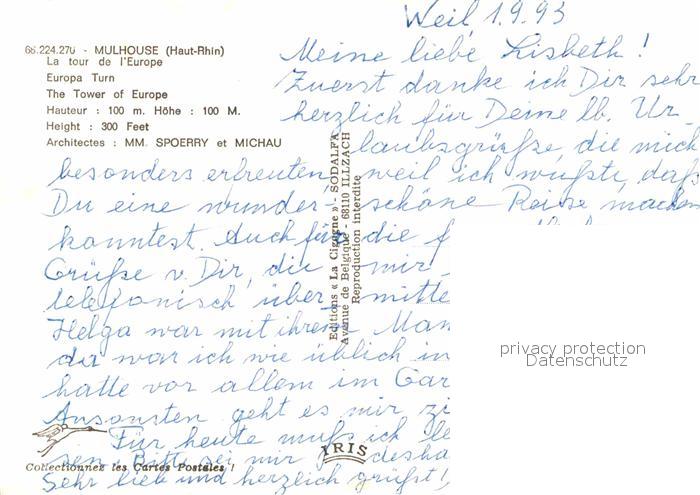 Weil, 1.9.93
68.224.270 - MULHOUSE (Haut-Rhin)
La tour de l'Europe
Europa Turn
The Tower of Europe
Hauteur : 100 m. Höhe : 100 M.
Height : 300 Feet
Architectes : MM. SPOERRY et MICHAU
Meine liebe Lisbeth !
Zuerst danke ich Dir sehr
herzlich für Deine lb. Ur-
laubsgrüße, die mich
besonders erfreuten weil ich wußte, daß
Du eine wunder- schöne Reise machen
konntest. Auch für die
Grüße v. Dir, die mir
telefonisch über- mitte
Helga war mit ihrem Man
da war ich wie üblich in
hatte vor allem im Gar
Ansonsten geht es mir zi
Für heute muß ich
sen. Bitte sei mir desha
Sehr lieb und herzlich grüßt
Editions « La Cigogne » - SODALFA
Avenue de Belgique - 68110 ILLZACH
Reproduction interdite
IRIS
Collectionnez les Cartes Postales !
privacy protection
Datenschutz